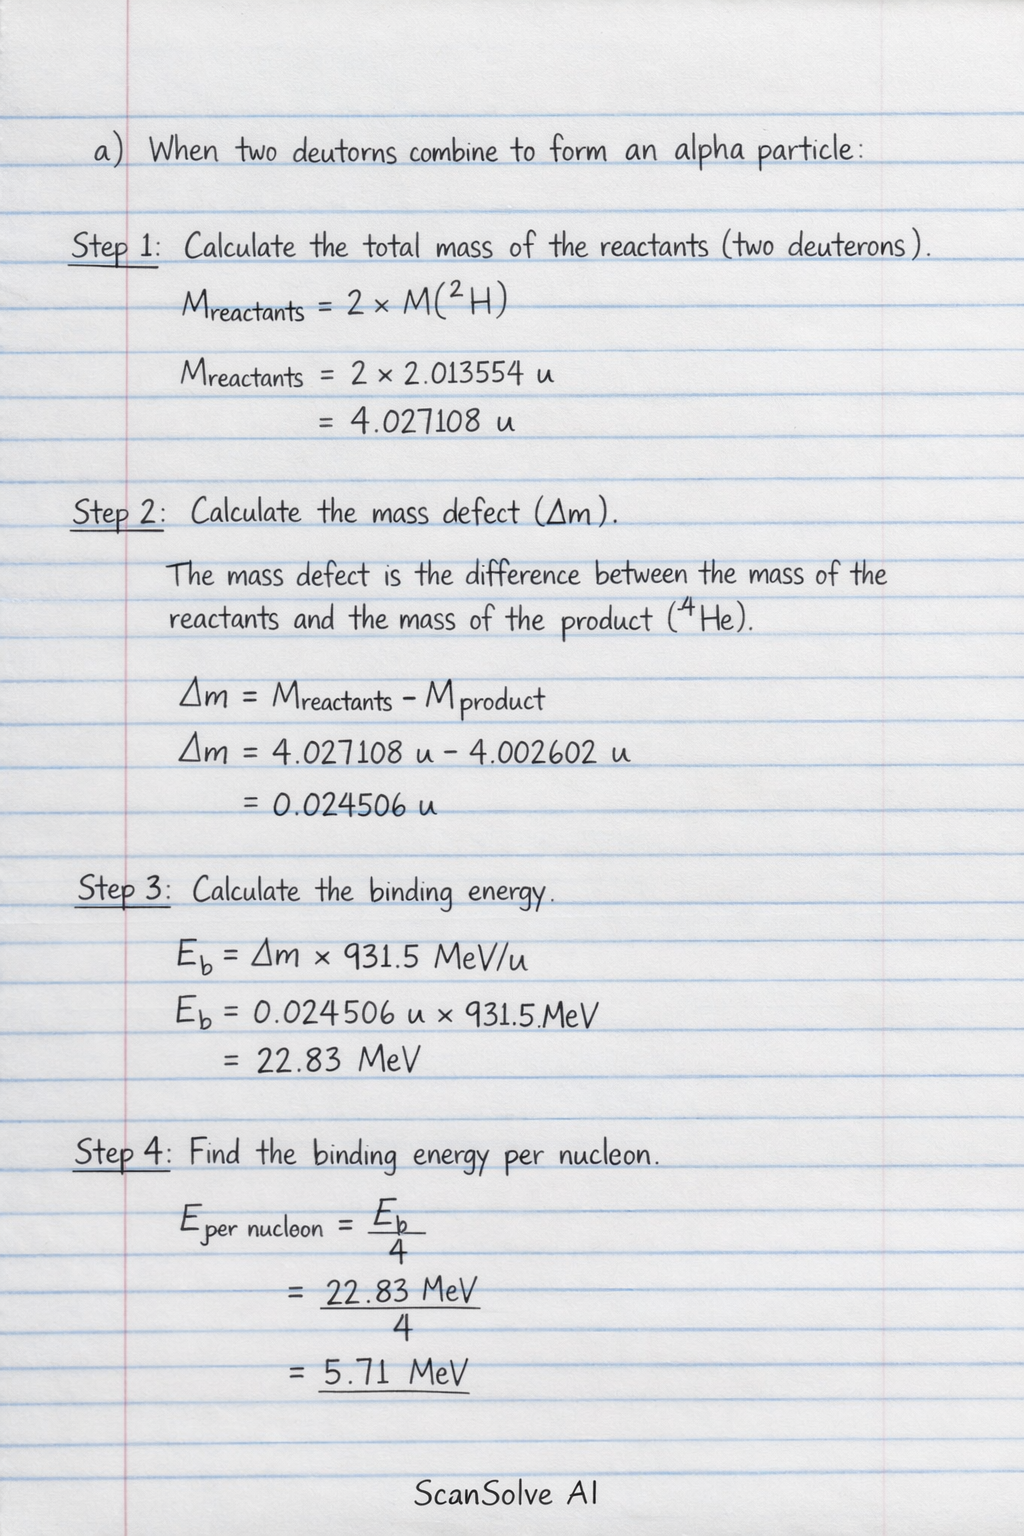 a) When two deutorns combine to form an alpha particle:
Step 1: Calculate the total mass of the reactants (two deuterons).
Mreactants = 2 × M(²H)
Mreactants = 2 × 2.013554 u
= 4.027108 u
Step 2: Calculate the mass defect (Δm).
The mass defect is the difference between the mass of the
reactants and the mass of the product (⁴He).
Δm = Mreactants − Mproduct
Δm = 4.027108 u − 4.002602 u
= 0.024506 u
Step 3: Calculate the binding energy.
E_b = Δm × 931.5 MeV/u
E_b = 0.024506 u × 931.5.MeV
= 22.83 MeV
Step 4: Find the binding energy per nucleon.
E per nucleon = E_b / 4
= 22.83 MeV / 4
= 5.71 MeV
ScanSolve AI